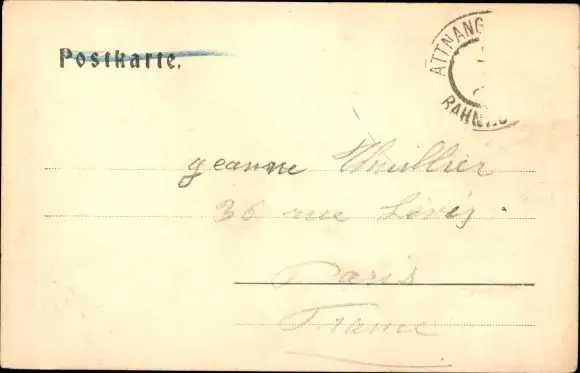 Postkarte.
ATTNANG
BAHN
Jeanne Thuillier
36 rue Lévis
Paris
France